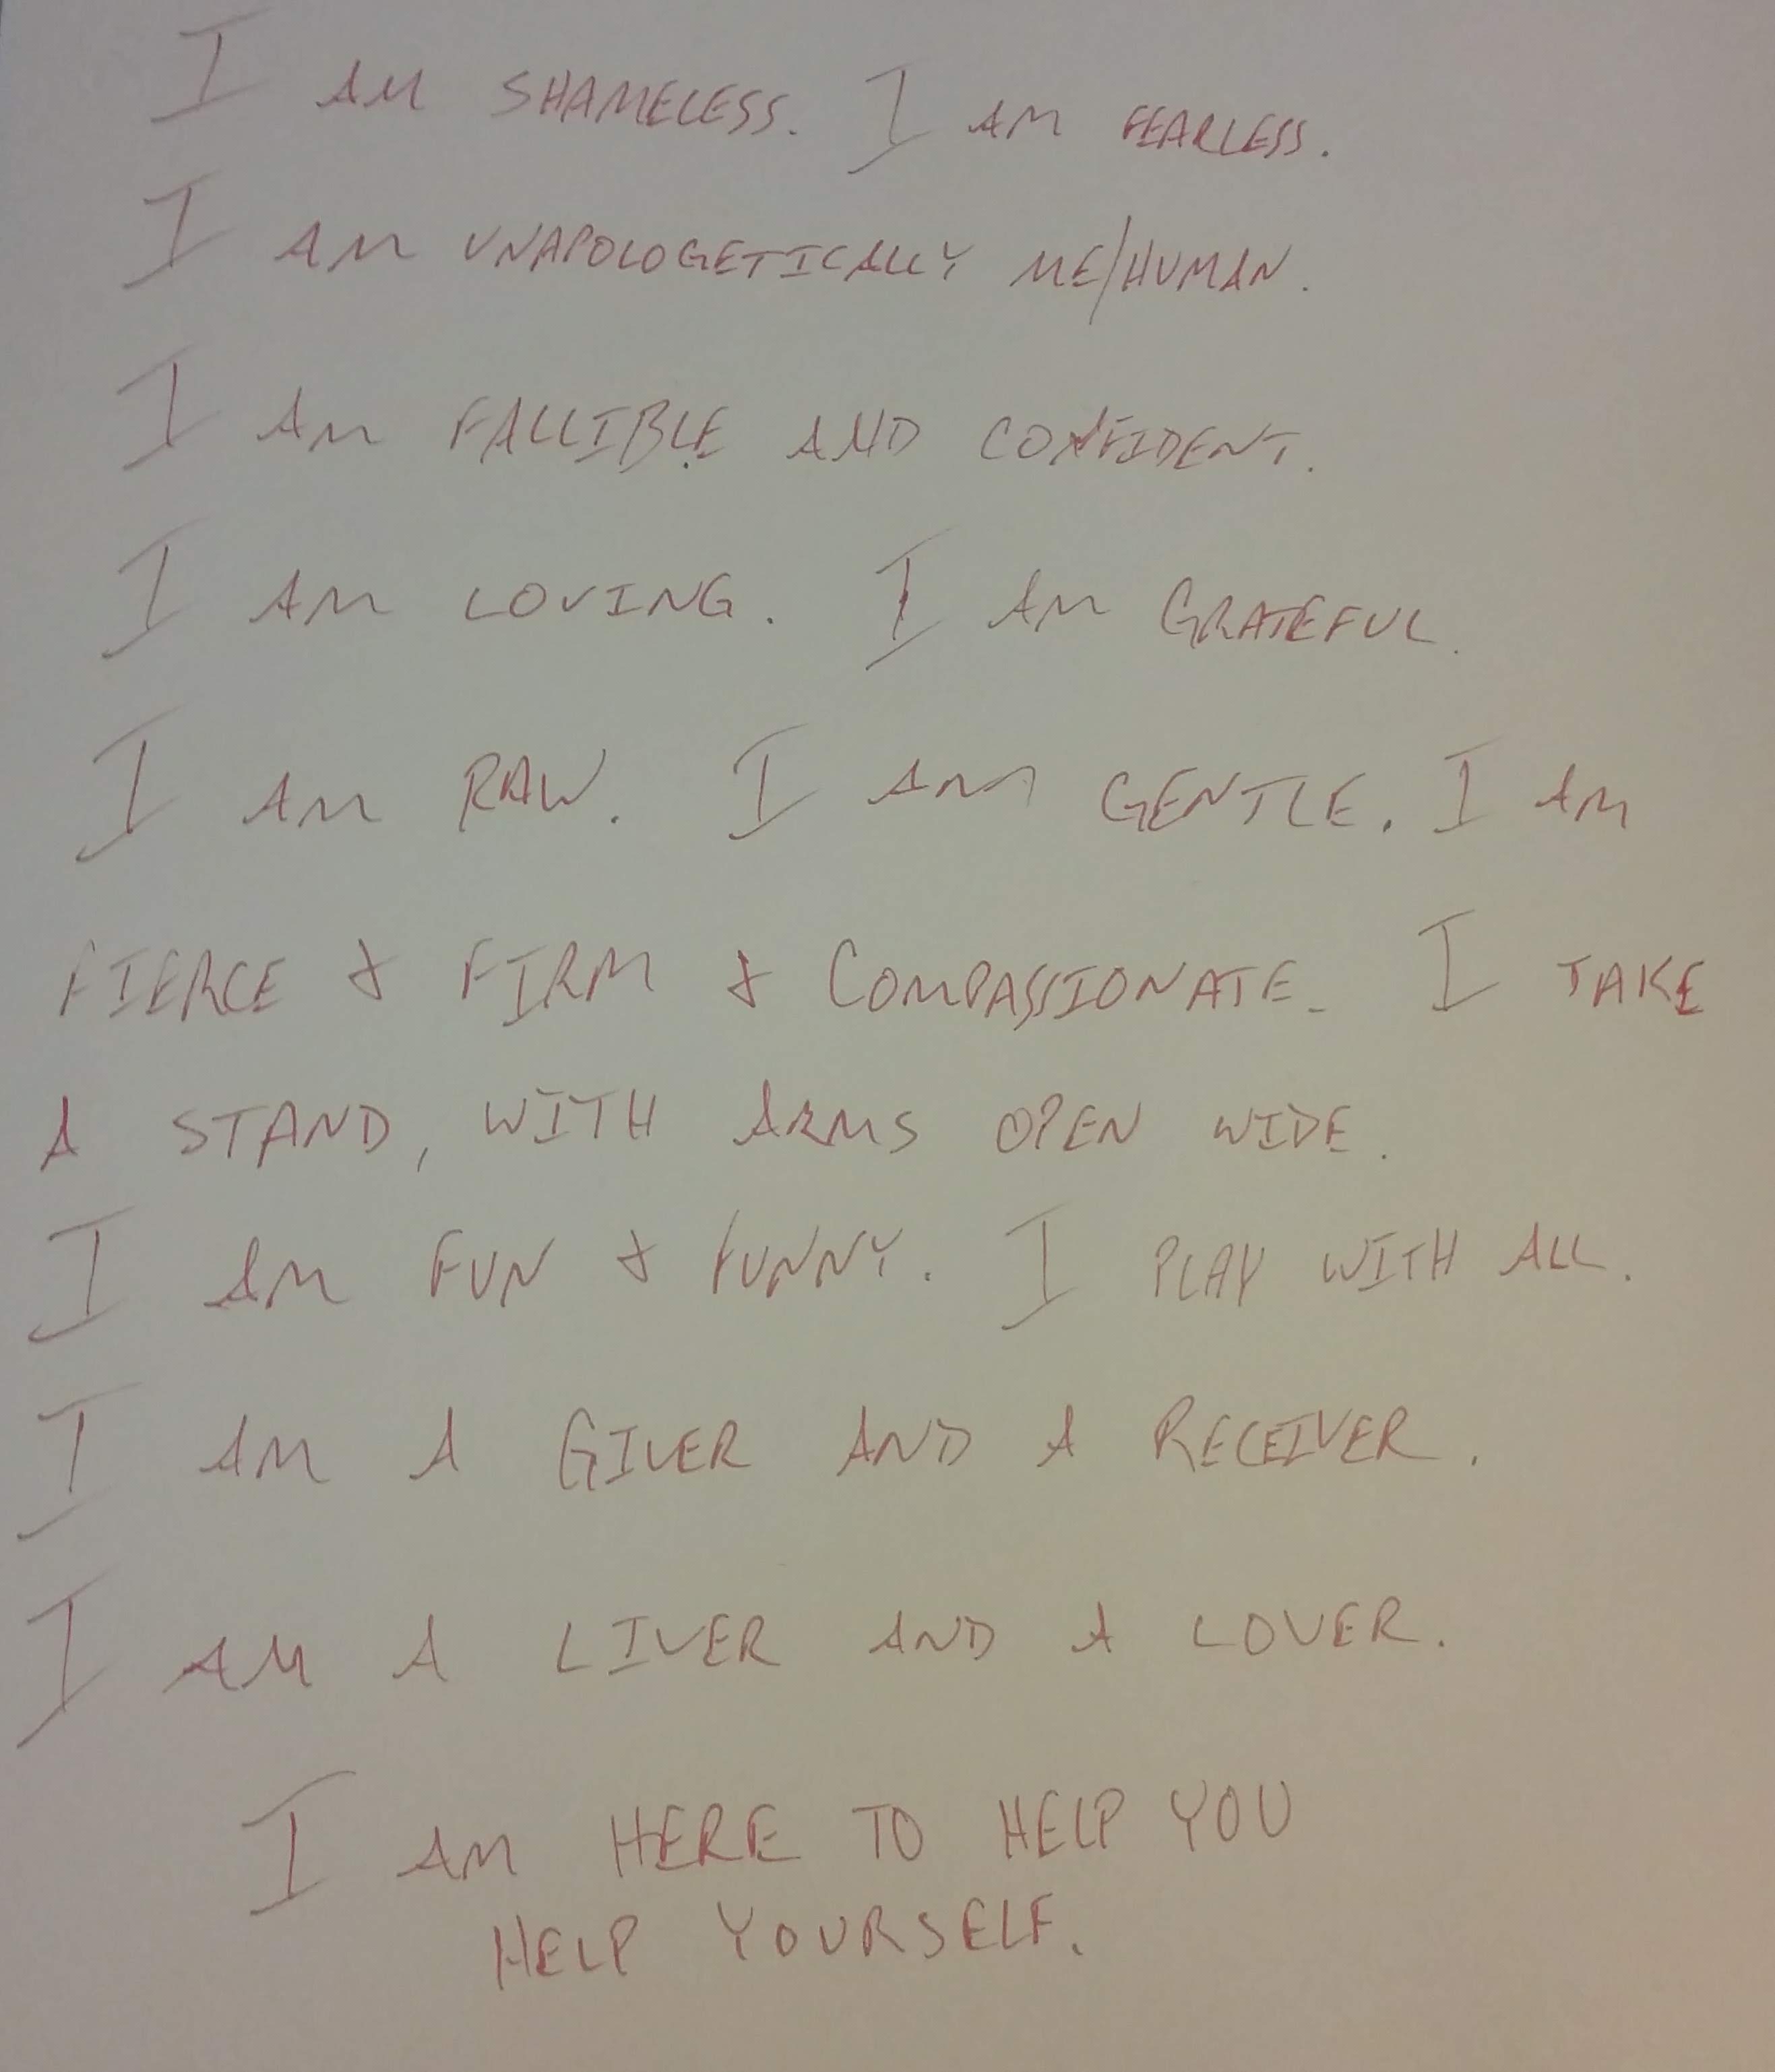 I AM SHAMELESS. I AM FEARLESS.
I AM UNAPOLOGETICALLY ME/HUMAN.
I AM FALLIBLE AND CONFIDENT.
I AM LOVING. I AM GRATEFUL.
I AM RAW. I AM GENTLE. I AM
FIERCE & FIRM & COMPASSIONATE. I TAKE
A STAND, WITH ARMS OPEN WIDE.
I AM FUN & FUNNY. I PLAY WITH ALL.
I AM A GIVER AND A RECEIVER.
I AM A LIVER AND A LOVER.
I AM HERE TO HELP YOU
HELP YOURSELF.